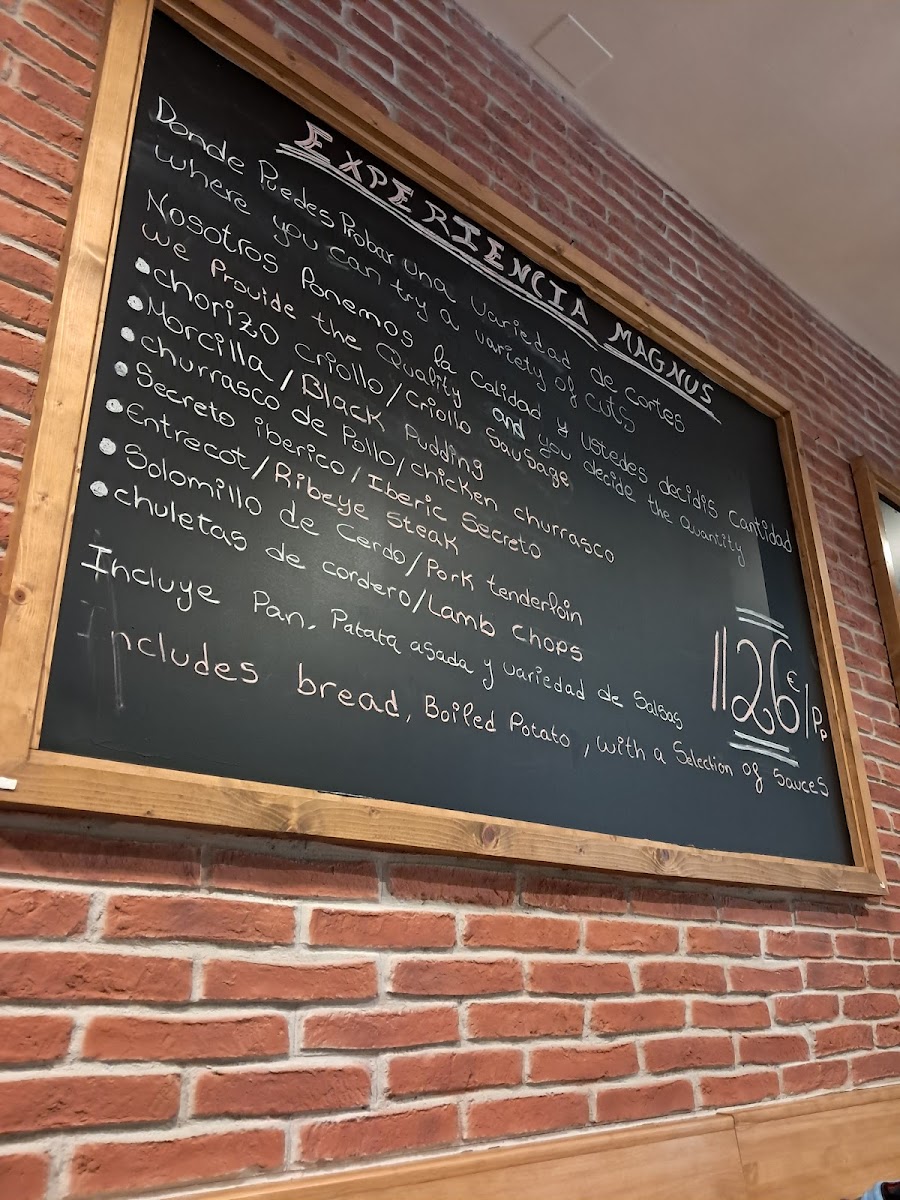 EXPERIENCIA MAGNUS
Donde Puedes Probar una variedad de cortes
where you can try a variety of cuts
Nosotros Ponemos la calidad y ustedes decidis cantidad
we Provide the Quality and you decide the quantity
• chorizo criollo/criollo Sausage
• Morcilla/Black Pudding
• churrasco de Pollo/chicken churrasco
• Secreto iberico/Iberic Secreto
• Entrecot/Ribeye steak
• Solomillo de Cerdo/Pork tenderloin
• chuletas de cordero/Lamb chops
Incluye Pan, Patata asada y variedad de Salsas
Includes bread, Boiled Potato, with a Selection of Sauces
26€/Pp